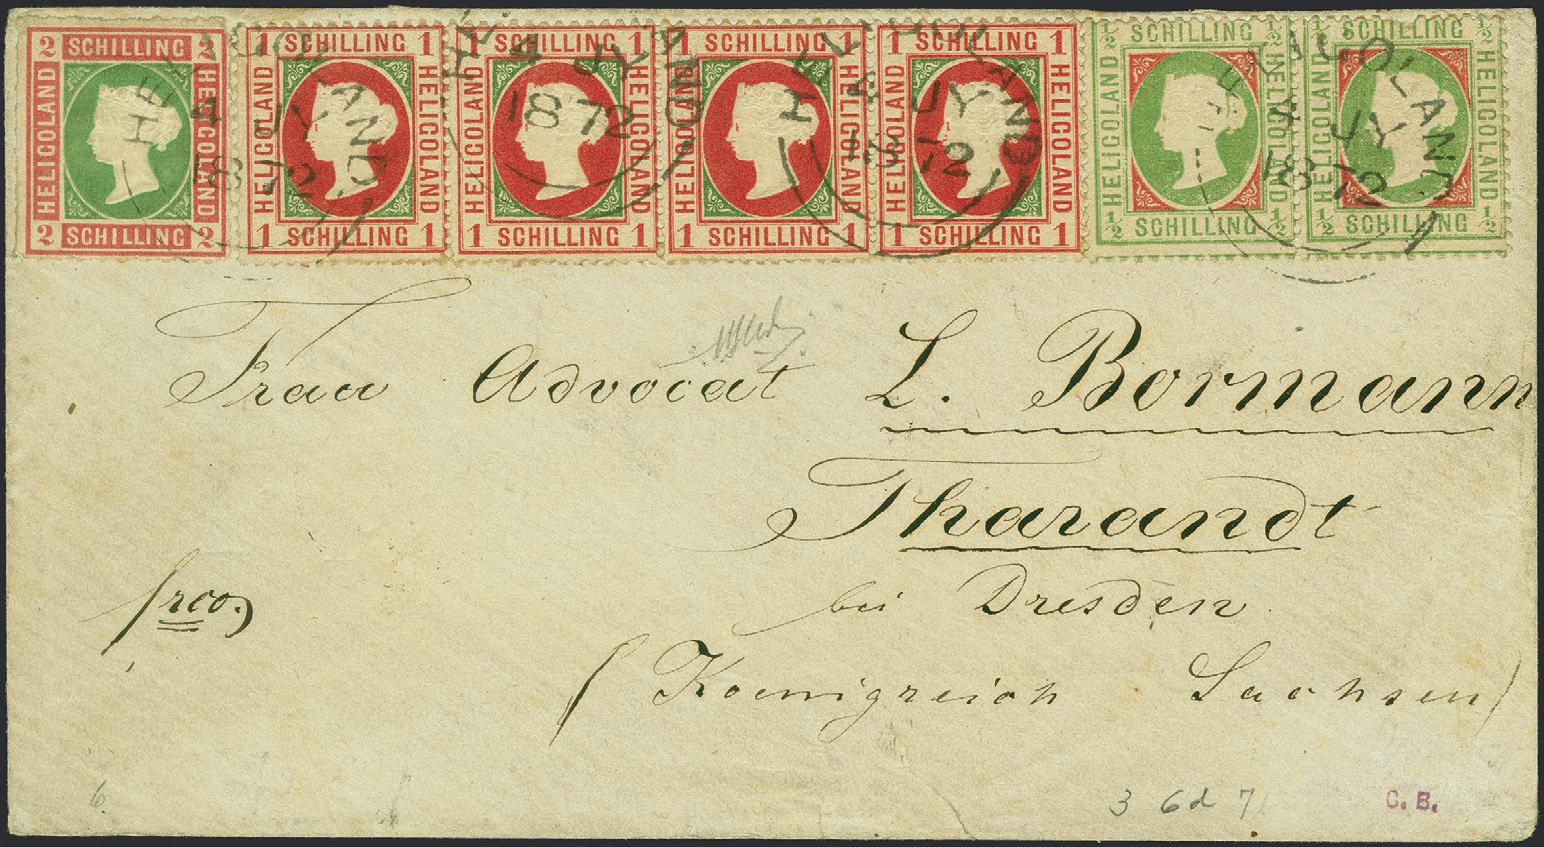 2 SCHILLING 2
HELIGOLAND
HELIGOLAND
2 SCHILLING 2
1 SCHILLING 1
HELIGOLAND
HELIGOLAND
1 SCHILLING 1
1 SCHILLING 1
HELIGOLAND
HELIGOLAND
1 SCHILLING 1
1 SCHILLING 1
HELIGOLAND
HELIGOLAND
1 SCHILLING 1
1 SCHILLING 1
HELIGOLAND
HELIGOLAND
1 SCHILLING 1
½ SCHILLING ½
HELIGOLAND
HELIGOLAND
½ SCHILLING ½
½ SCHILLING ½
HELIGOLAND
HELIGOLAND
½ SCHILLING ½
HELIGOLAND
4 JY
1872
HELIGOLAND
4 JY
1872
HELIGOLAND
4 JY
1872
HELIGOLAND
4 JY
1872
Frau Advocat L. Bormann
Tharandt
frco.
bei Dresden
(Koenigreich Sachsen)
6
3 6d 71
C. B.